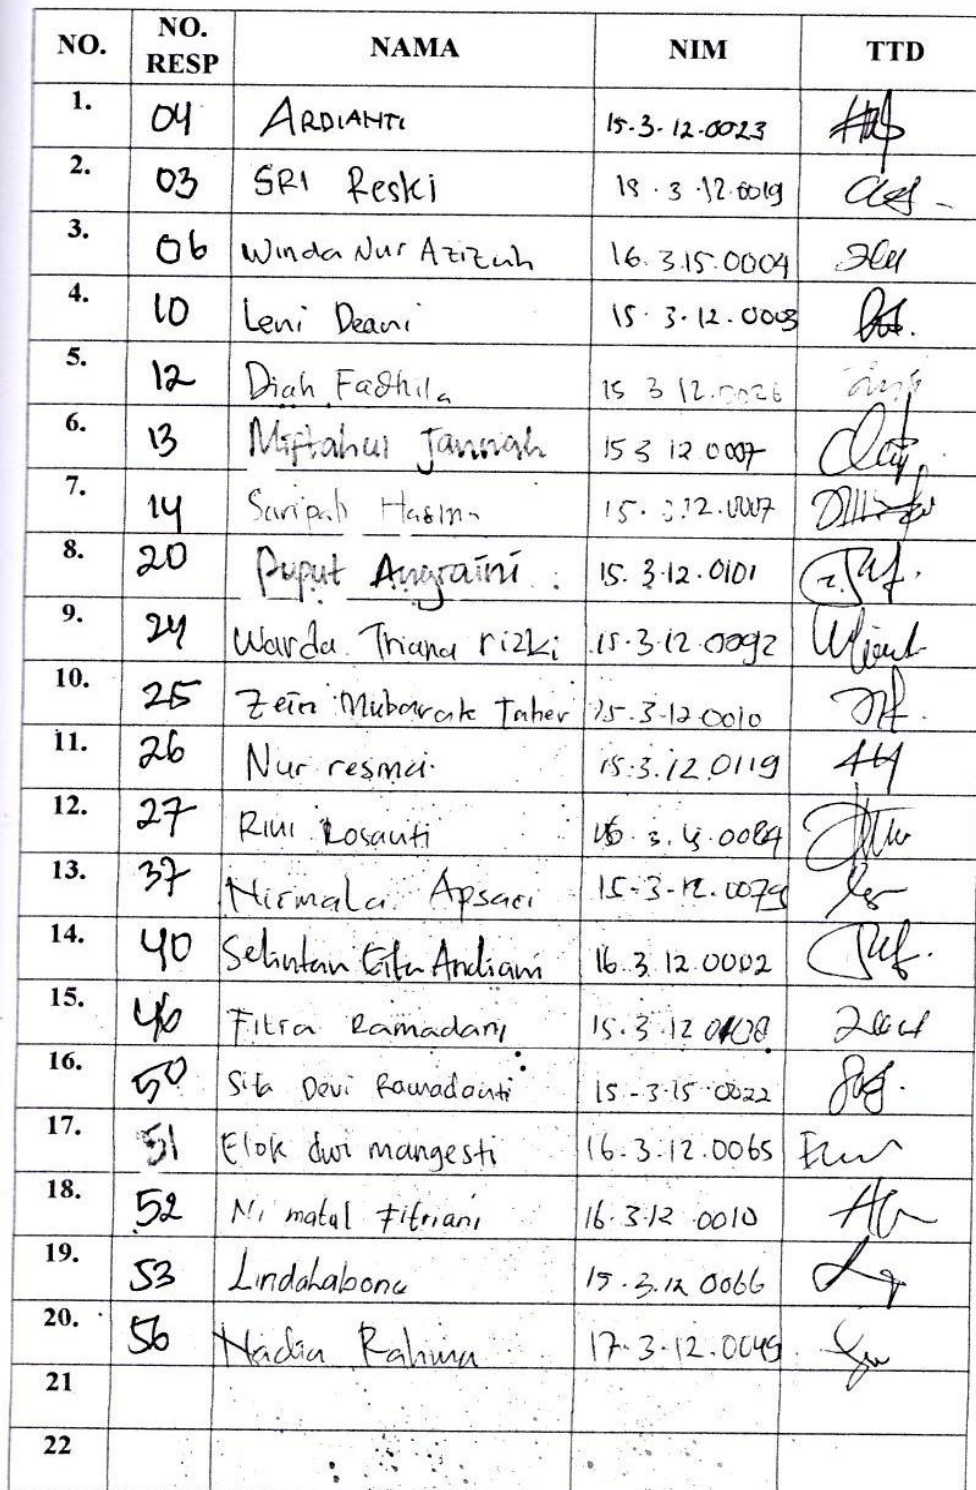 NO. NO. RESP NAMA NIM TTD
1. 04 ARDIANTI 15.3.12.0023
2. 03 SRI Reski 15.3.12.0019
3. 06 Winda Nur Azizah 16.3.15.0004
4. 10 Leni Deani 15.3.12.0003
5. 12 Diah Fadhila 15 3 12.0026
6. 13 Miftahul Jannah 15 3 12 0007
7. 14 Saripah Hasma 15.3.12.0007
8. 20 Puput Angraini 15.3.12.0101
9. 24 Warda Triana rizki 15.3.12.0092
10. 25 Zein Mubarak Taher 15.3.12.0010
11. 26 Nur resma 15.3.12.0119
12. 27 Rini Rosanti
13. 37 Nirmala Apsari 15-3-12.0079
14. 40 Gita Andiani 16.3.12.0002
15. 46 Fitra Ramadani 15.3.12
16. 50 Sita Devi Ramadanti 15-3-15-0022
17. 51 Elok dwi mangesti 16.3.12.0065
18. 52 Ni matal Fitriani 16.3.12 0010
19. 53 Lindahabona 15.3.12 0066
20. 56 Nadia Rahma 17.3.12.0049
21
22